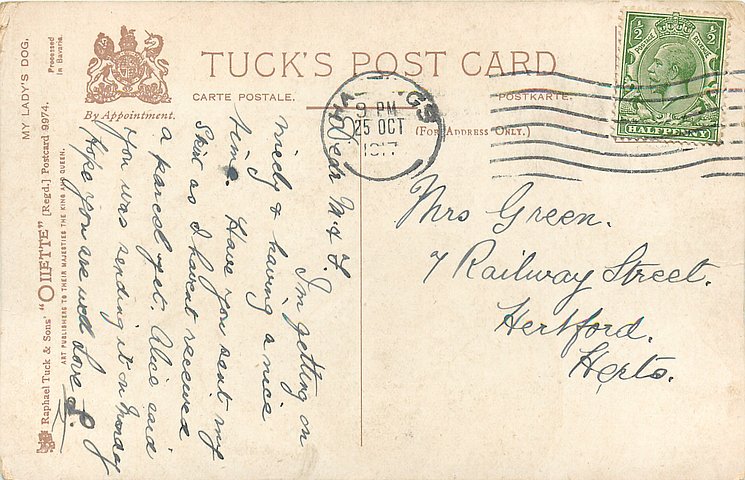 MY LADY'S DOG.
Processed
in Bavaria.
Raphael Tuck & Sons' "OILETTE" [Regd.] Postcard 9974.
ART PUBLISHERS TO THEIR MAJESTIES THE KING AND QUEEN.
By Appointment.
TUCK'S POST CARD
CARTE POSTALE.
POSTKARTE.
(For Address Only.)
HASTINGS
9 PM
25 OCT
1917
½ ½
POSTAGE
HALFPENNY
Dear M. & F.
I'm getting on
nicely & having a nice
time. Have you sent my
Skirt as I havent received
a parcel yet. Alice said
you was sending it on Monday
Hope you are well Love
Mrs Green.
7 Railway Street.
Hertford.
Herts.